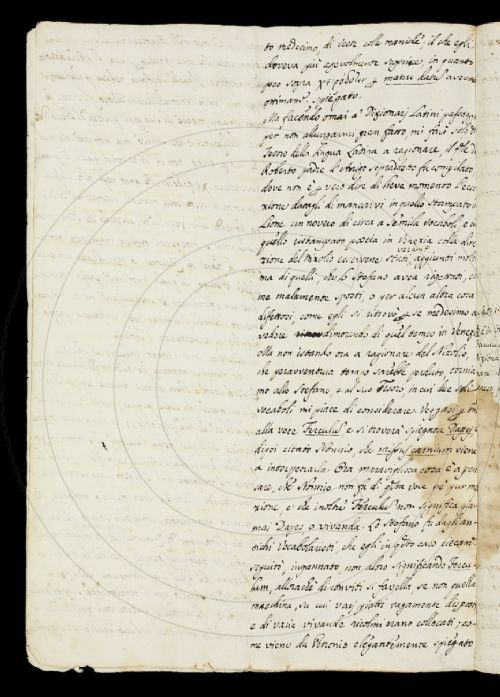 to medesimo, di veste colle maniche; il che egli
doveva più agevolmente scprire, in quanto
poco sopra manus datil aveva
ottimam.te spiegato.
Ma facendo omai a' Dizionarj Latini passaggio
per non allungarmi gran fatto, mi farò solo di
Tesoro della lingua Latina a ragionare, il q.le da
Roberto padre d'Arrigo sopradetto fu compilato
dove non è p vero dire di lieve momento l'ecce
zione datagli di mancarvi in quello stampato in
Lione un novero di circa a semila vocaboli, e in
quello ristampato poscia in Venezia colla dire
zione del Nizolio essersene stati, aggiunti molti
ma di quelli, che lo Stefano avea rigettati, co
me malamente sposti, o per alcun altra cosa
difettosi, come egli si ritrovò p se medesimo a
vedere dimorando di quel tempo in Venezia
Ma non istando ora a ragionare del Nizolio,
che peravventura tempo sarebbe perduto, tornia
mo allo Stefano, e al suo Tesoro in cui due soli
vocaboli mi piace di considerare. Veggasi p
alla voce Ferculus e si troverà spiegata Dapes
dirsi citato Nonnio, che missus carnium viene
a interpetrarla. Ora maravigliosa cosa è a pen
sare, che Nonnio non fa di q.sta voce nè pur me
zione, e che inoltre Ferculus non significa giam
mai Dapes, o vivanda. Lo Stefano fu dagli an
tichi vocabolaristi, che egli in q.sto caso ciecam.te
seguitò, ingannato non altro significando Fercu
lum, allorachè di conviti si favella se non quella
macchina, su cui varj piatti vagamente disposti
e di varie vivande ricolmi erano collocati; co
me viene da Petronio elegantemente spiegato